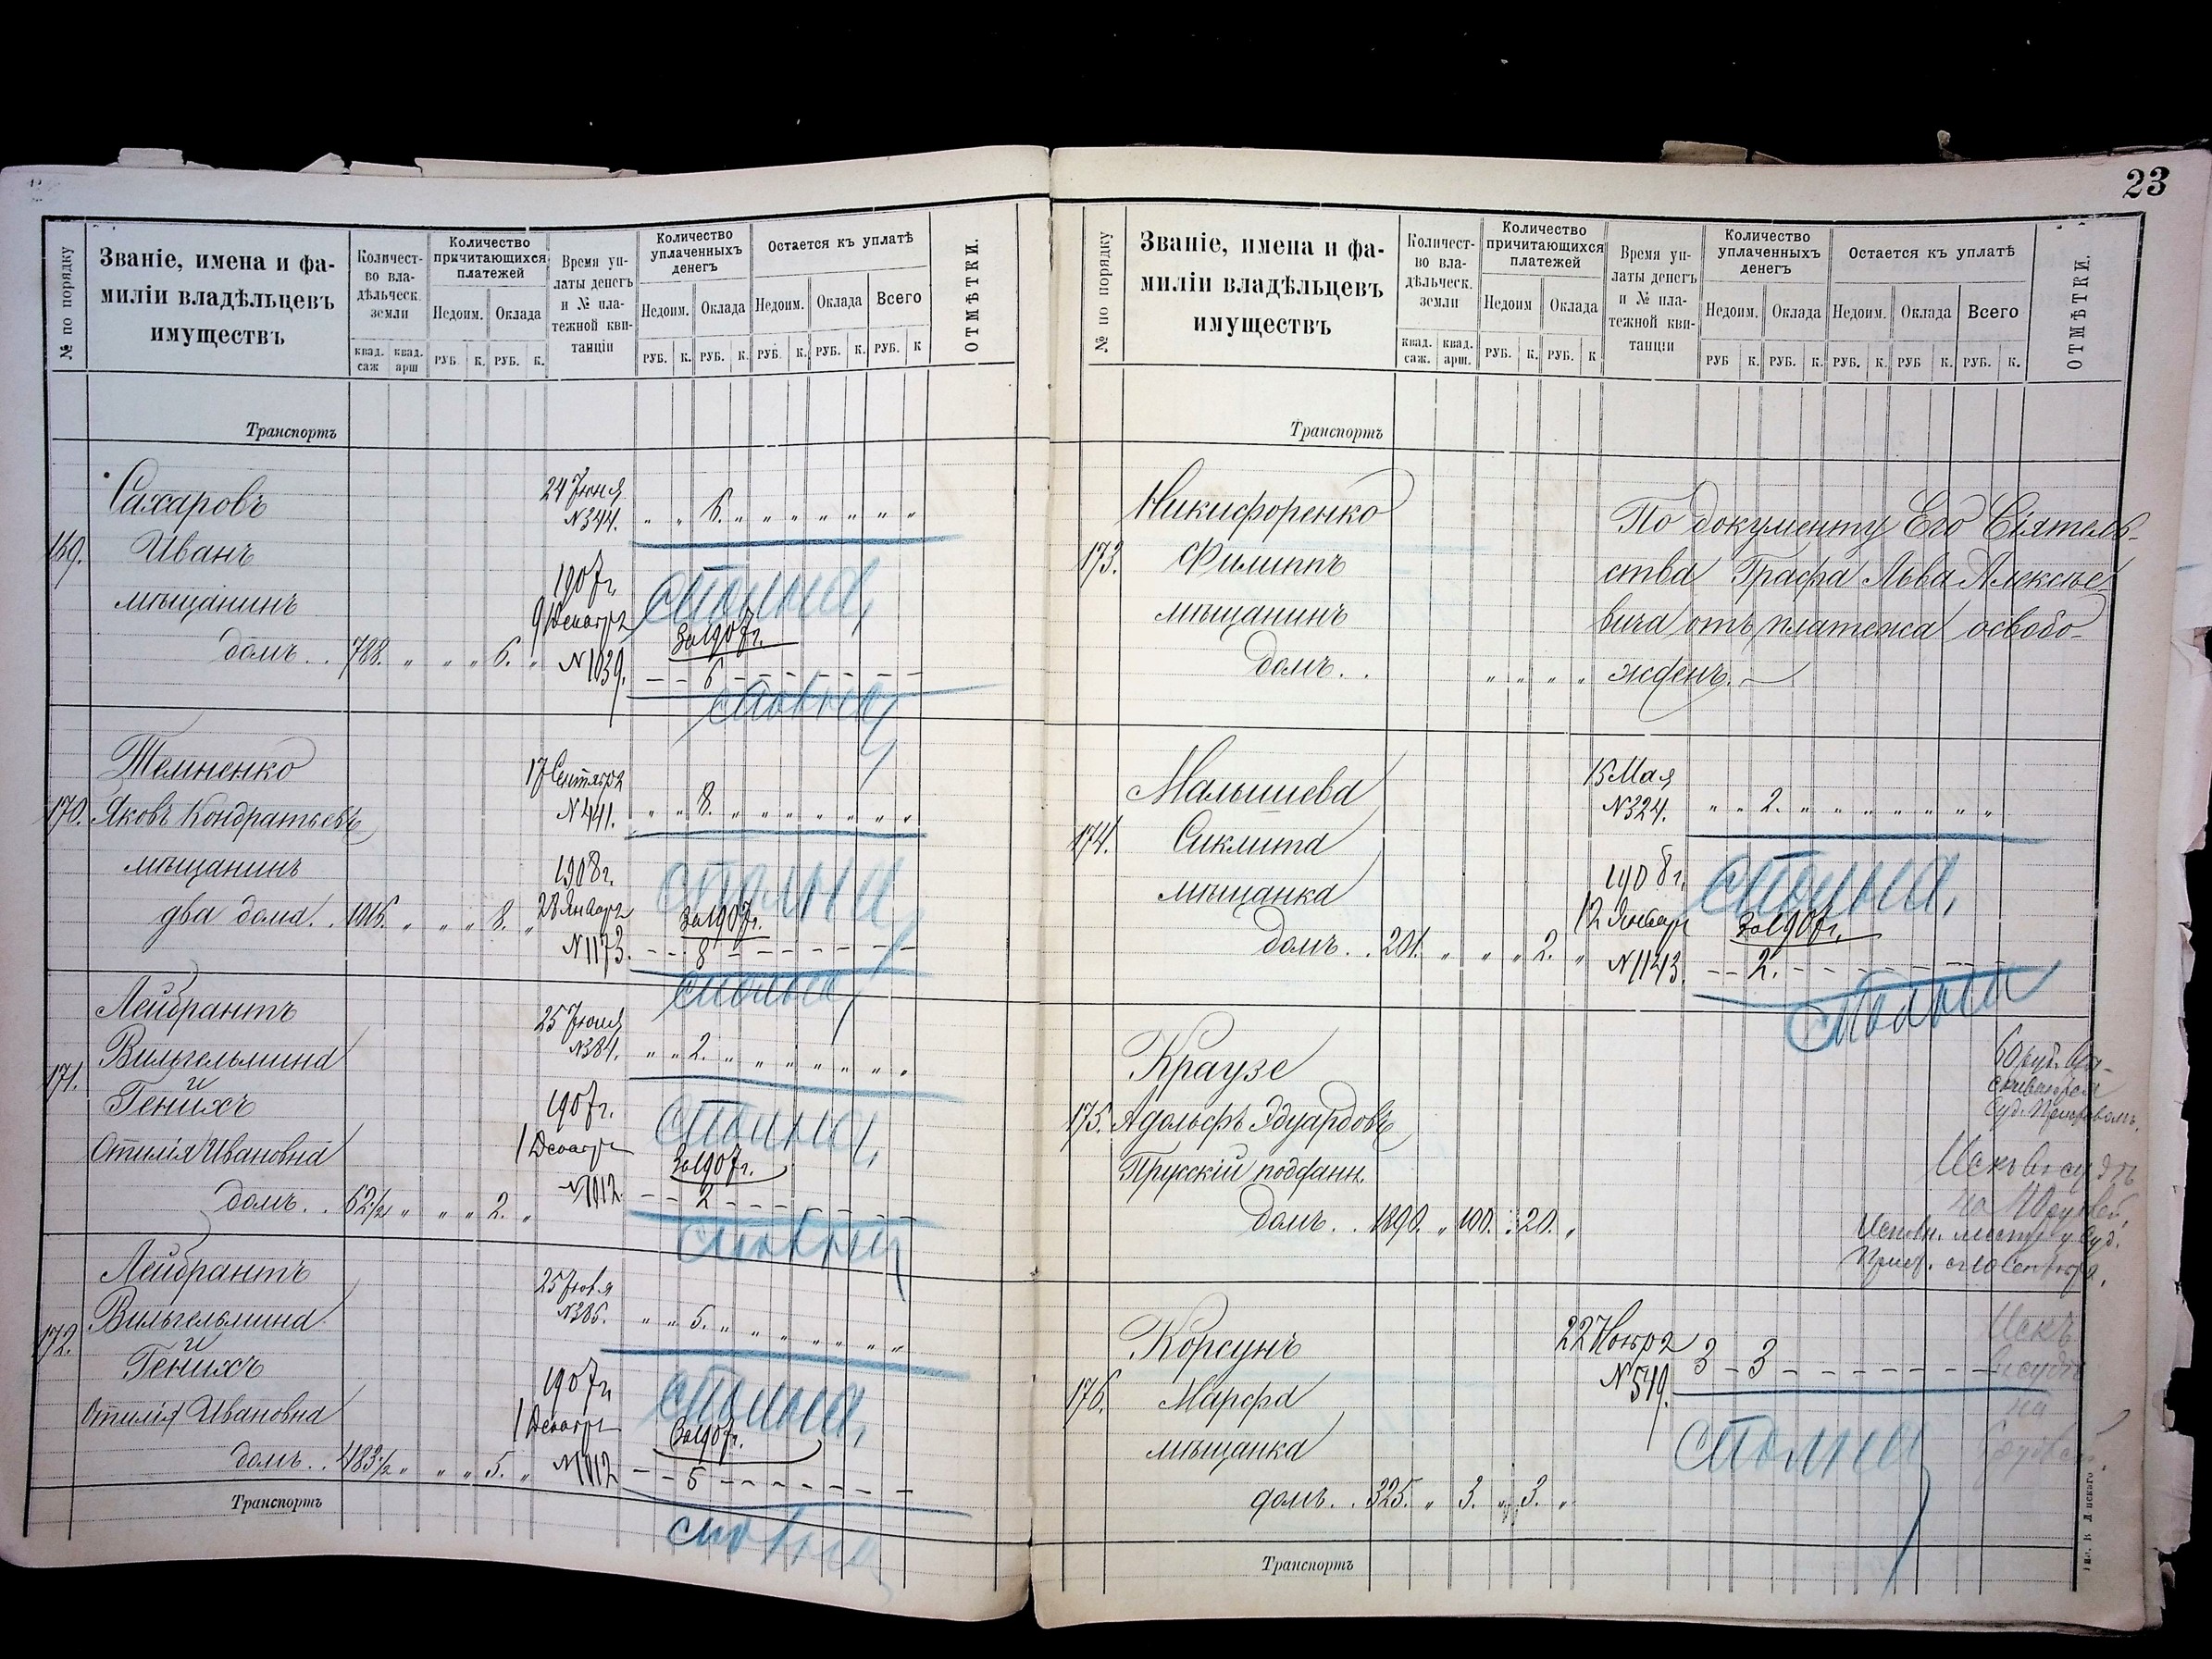 23
№ по порядку
Званіе, имена и фа-
миліи владѣльцевъ
имуществъ
Количест-
во вла-
дѣльческ.
земли
квад. саж
квад. арш
Количество
причитающихся
платежей
Недоим. Оклада
РУБ. К. РУБ. К.
Время уп-
латы денегъ
и № пла-
тежной кви-
танціи
Количество
уплаченныхъ
денегъ
Недоим. Оклада
РУБ. К. РУБ. К.
Остается къ уплатѣ
Недоим. Оклада Всего
РУБ. К. РУБ. К. РУБ. К
ОТМѢТКИ.
Транспортъ
169.
Сахаровъ
Иванъ
мѣщанинъ
домъ . . 788. „ „ „ 6. „
24 Іюня
№344. „ „ 6. „ „ „ „ „ „ „
1907г.
9 Декабр
За 1907г.
№1039. – – 6 – – – – – – –
170.
Темненко
Яковъ Кондратьевъ
мѣщанинъ
два дома . . 1016. „ „ „ 8. „
17 Сентября
№441. „ „ 8. „ „ „ „ „ „ „
1908г.
28 Январ
За 1907г.
№1173. – – 8 – – – – – – –
171.
Лейбрантъ
Вильгельмина
и
Генихъ
Отилія Ивановна
домъ . . 62½ „ „ „ 2. „
25 Іюня
№384. „ „ 2. „ „ „ „ „ „ „
1907г.
1 Декабр
За 1907г.
№1012. – – 2 – – – – – – –
172.
Лейбрантъ
Вильгельмина
и
Генихъ
Отилія Ивановна
домъ . . 483½ „ „ „ 5. „
25 Іюня
№385. „ „ 5. „ „ „ „ „ „ „
1907г.
1 Декабр
За 1907г.
№1012 – – 5 – – – – – – –
Транспортъ
№ по порядку
Званіе, имена и фа-
миліи владѣльцевъ
имуществъ
Количест-
во вла-
дѣльческ.
земли
квад. саж.
квад. арш.
Количество
причитающихся
платежей
Недоим Оклада
РУБ. К. РУБ. К
Время уп-
латы денегъ
и № пла-
тежной кви-
танціи
Количество
уплаченныхъ
денегъ
Недоим. Оклада
РУБ К. РУБ. К.
Остается къ уплатѣ
Недоим. Оклада Всего
РУБ. К. РУБ К. РУБ. К.
ОТМѢТКИ.
Транспортъ
173.
Никифоренко
Филиппъ
мѣщанинъ
домъ . . „ „ „ „
По документу Его Сіятель-
ства Графа Льва Алексѣе-
вича отъ платежа освобо-
жденъ.
174.
Малышева
Сиклита
мѣщанка
домъ . . 201. „ „ „ 2. „
15 Мая
№324. „ „ 2. „ „ „ „ „ „ „
1908г.
12 Январ
За 1907г.
№1143. – – 2. – – – – – – –
175.
Краузе
Адольфъ Эдуардовъ
Прусскій поддан.
домъ . . 1890. „ 100. „ 20. „
60 руб.
Искъ въ судъ
176.
Корсунъ
Марфа
мѣщанка
домъ . . 325. „ 3. „ 3. „
22 Ноября
№549. 3 – 3 – – – – – – –
Искъ
въ судъ
на
Транспортъ